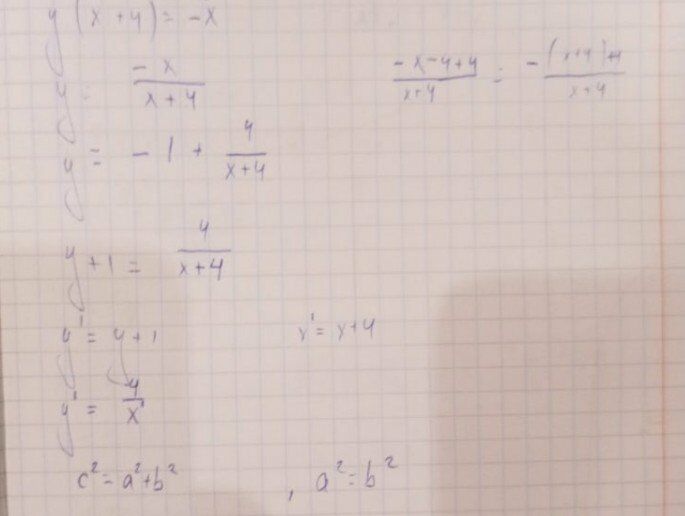 y (x + 4) = -x
y = -x/(x + 4)
(-x-4+4)/(x+4) = (-(x+4)+4)/(x+4)
y = -1 + 4/(x+4)
y + 1 = 4/(x+4)
y' = y + 1
x' = x + 4
y' = 4/x'
c² = a² + b² , a² = b²